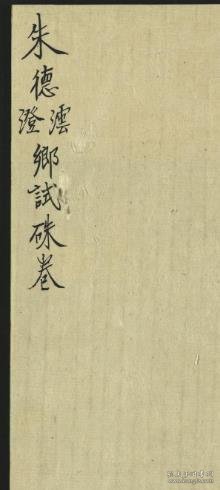 朱德澐澄鄉試硃卷